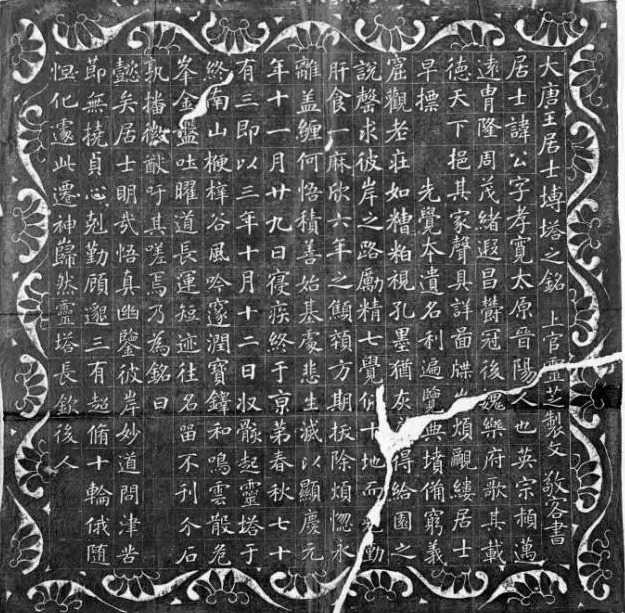 大唐王居士塼塔之銘 上官靈芝製文 敬客書
居士諱公字孝寬太原晉陽人也英宗頍邁
遠胄隆周茂緒遐昌欝冠後魏樂府歌其載
德天下挹其家聲具詳圖牒此煩覼縷居士
早標 先覺本遺名利遍覽典墳備窮義
窟觀老莊如糟粕視孔墨猶灰得給園之
說罄求彼岸之路勵精七覺仰十地而勤
肝食一麻欣六年之顦顇方期拔除煩惚永
離盖纏何悟積善始基處悲生滅以顯慶元
年十一月廿九日寑疾終于京第春秋七十
有三即以三年十月十二日収骸起靈塔于
終南山梗梓谷風吟邃澗寶鐸和鳴雲散危
峯金盤吐曜道長運短迹往名留不刋介石
孰播徽猷吁其嗟焉乃為銘曰
懿矣居士明哉悟真幽鑒彼岸妙道問津苦
節無撓貞心剋勤顧邈三有超脩十輪俄随
怛化遽此遷神巋然靈塔長欽後人